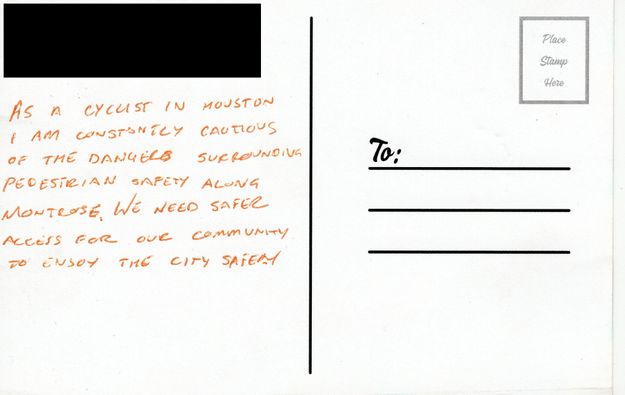 AS A CYCLIST IN HOUSTON
I AM CONSTANTLY CAUTIOUS
OF THE DANGERS SURROUNDING
PEDESTRIAN SAFETY ALONG
MONTROSE. WE NEED SAFER
ACCESS FOR OUR COMMUNITY
TO ENJOY THE CITY SAFELY
Place
Stamp
Here
To: